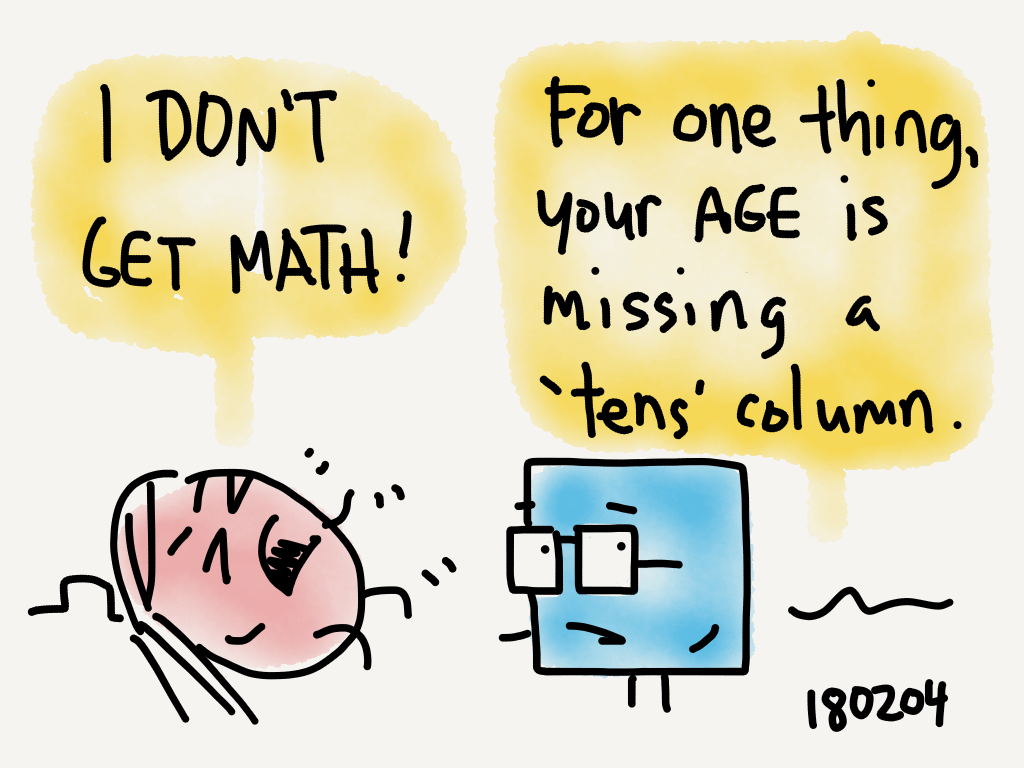 I DON'T
GET MATH!
For one thing,
your AGE is
missing a
'tens' column.
180204